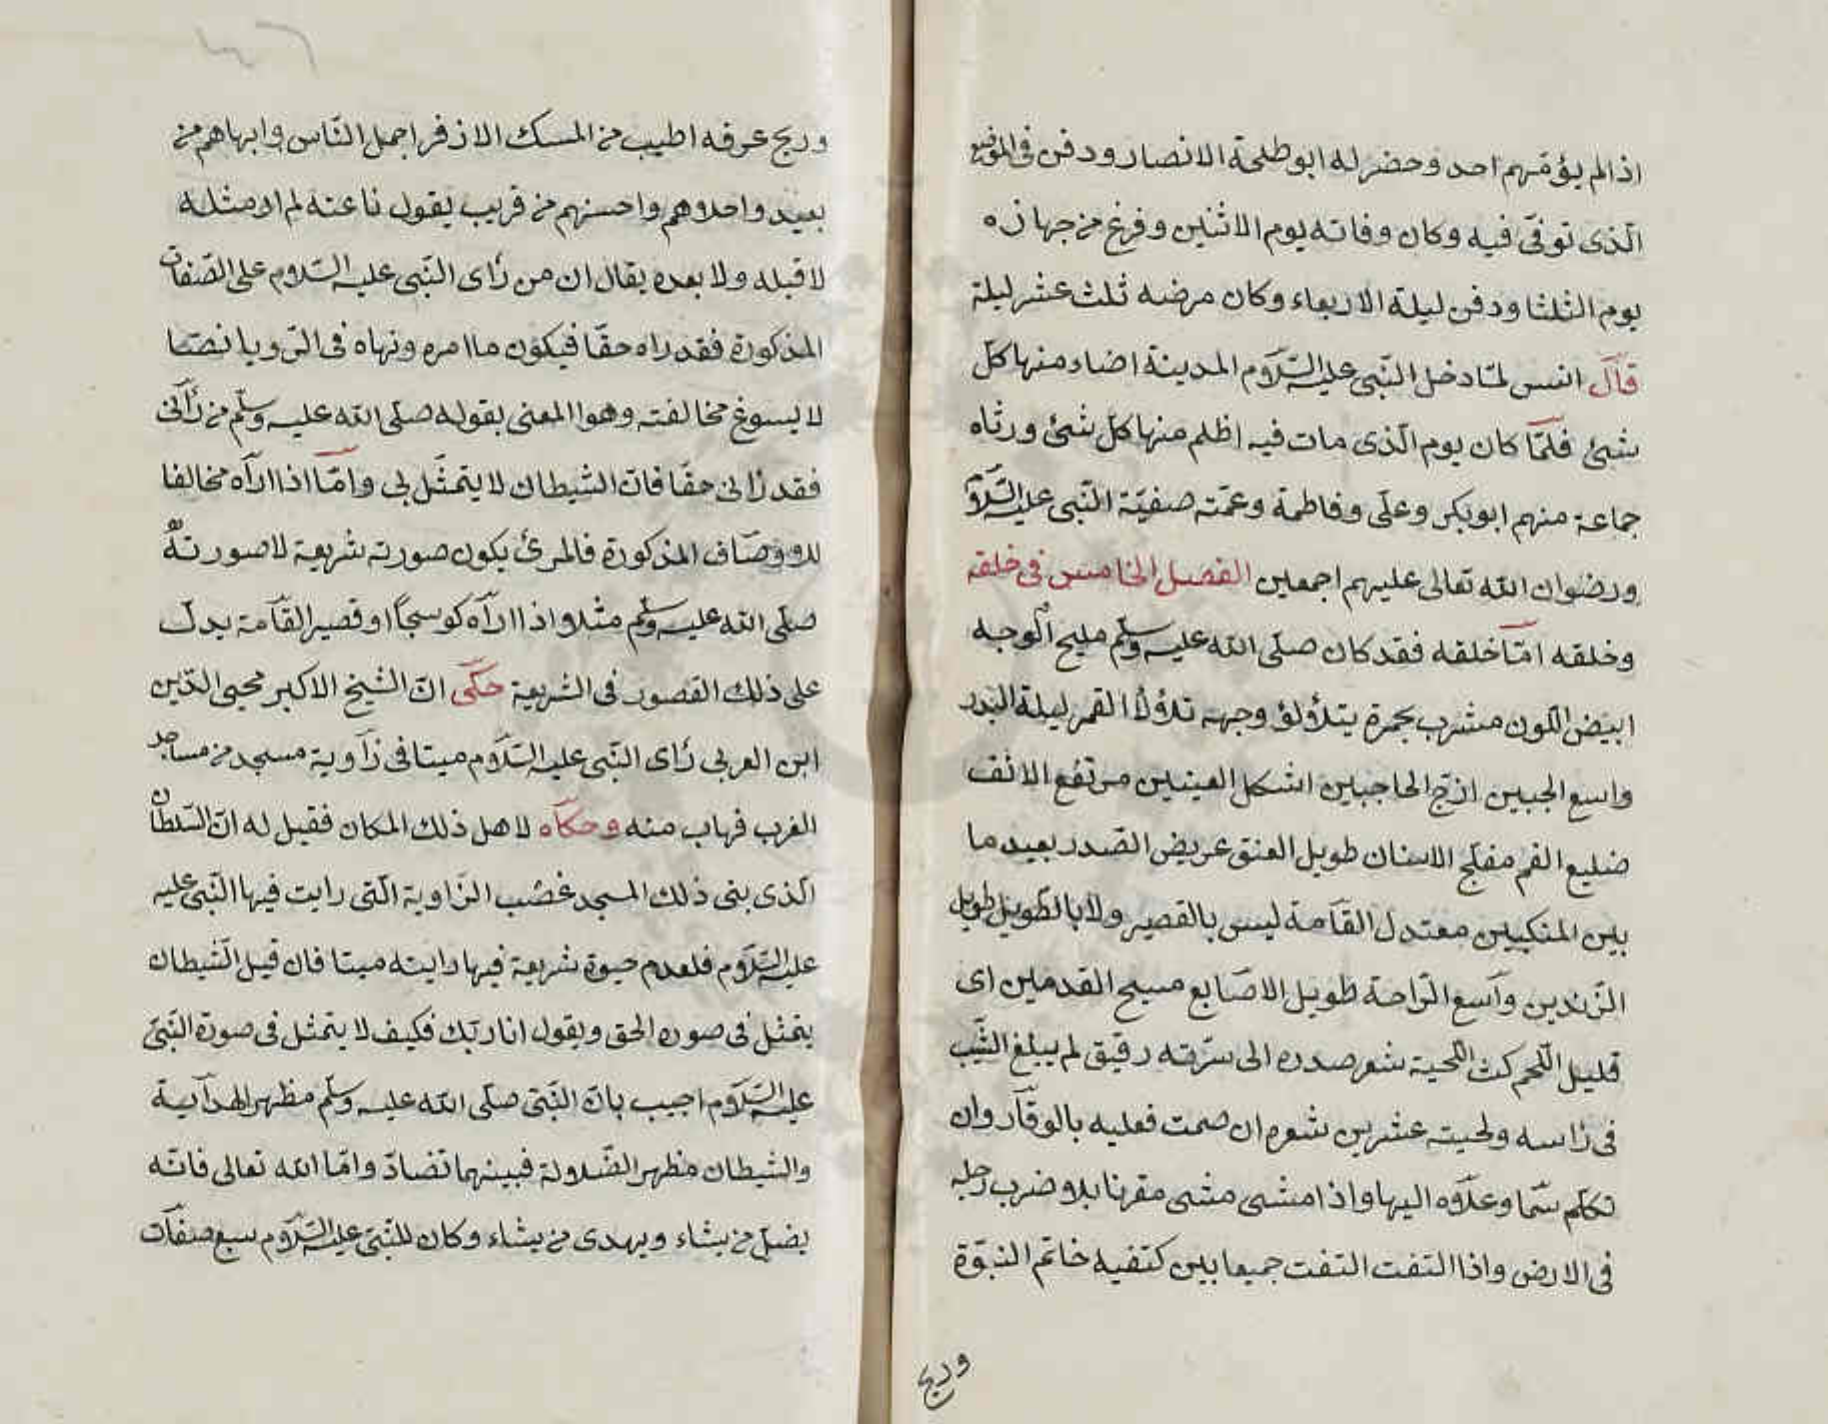 اذا لم يؤمهم احد وحضر له ابو طلحة الانصار ودفن فى الموضع
الّذى توفّى فيه وكان وفاته يوم الاثنين وفرغ من جهازه
يوم الثلثا ودفن ليلة الاربعاء وكان مرضه ثلث عشر ليلة
قال انس لمّا دخل النّبى عليه السّلام المدينة اضاء منها كلّ
شئ فلمّا كان يوم الّذى مات فيه اظلم منها كلّ شئ ورثاه
جماعة منهم ابوبكر وعلى وفاطمة وعمّته صفيّة النّبى عليه السّلام
ورضوان الله تعالى عليهم اجمعين الفصل الخامس فى خلقه
وخلقه امّا خلقه فقد كان صلّى الله عليه وسلّم مليح الوجه
ابيض اللّون مشرب بحمرة يتلألؤ وجهه تلألأ القمر ليلة البدر
واسع الجبين ازجّ الحاجبين اشكل العينين مرتفع الانف
ضليع الفم مفلّج الاسنان طويل العنق عريض الصّدر بعيد ما
بين المنكبين معتدل القامة ليس بالقصير ولا بالطّويل طويل
الزّندين واسع الرّاحة طويل الاصابع مسيح القدمين اى
قليل اللّحم كث اللّحية شعر صدره الى سرّته رقيق لم يبلغ الشّيب
فى رأسه ولحيته عشرين شعره ان صمت فعليه بالوقار وان
تكلّم سمّا وعلاوه اليها واذا مشى مشى مقرنا بلا ضرب رجله
فى الارض واذا التفت التفت جميعا بين كتفيه خاتم النبوّة
وريح
وريح عرقه اطيب من المسك الاذفر اجمل النّاس وابهاهم من
بعيد واحلاهم واحسنهم من قريب يقول ناعته لم ار مثله
لا قبله ولا بعده يقال ان من رأى النّبى عليه السّلام على الصّفات
المذكورة فقد راه حقّا فيكون ما امره ونهاه فى الرّويا نصّا
لا يسوغ مخالفته وهو المعنى بقوله صلّى الله عليه وسلّم من رأنى
فقد رأنى حقّا فانّ الشيطان لا يتمثّل بى وامّا اذا رآه مخالفا
للاوصاف المذكورة فالمرئ يكون صورته شريعة لا صورته
صلّى الله عليه وسلّم مثلا اذا رآه كوسجا او قصير القامة يدل
على ذلك القصور فى الشريعة حكى انّ الشيخ الاكبر محيى الدّين
ابن العربى رأى النّبى عليه السّلام ميتا فى زاوية مسجد من مساجد
الغرب فهاب منه وحكاه لاهل ذلك المكان فقيل له انّ السّلطان
الّذى بنى ذلك المسجد غصب الزّاوية الّتى رايت فيها النّبى عليه
عليه السّلام فلعدم حيوة شريعة فيها رايته ميتا فان قيل الشّيطان
يتمثل فى صوره الحق ويقول انا ربّك فكيف لا يتمثل فى صورة النّبىّ
عليه السّلام اجيب بانّ النّبىّ صلّى الله عليه وسلّم مظهر الهداية
والشيطان مظهر الضّلالة فبينهما تضادّ وامّا الله تعالى فانّه
يضلّ من يشاء ويهدى من يشاء وكان للنّبىّ عليه السّلام سبع صفات